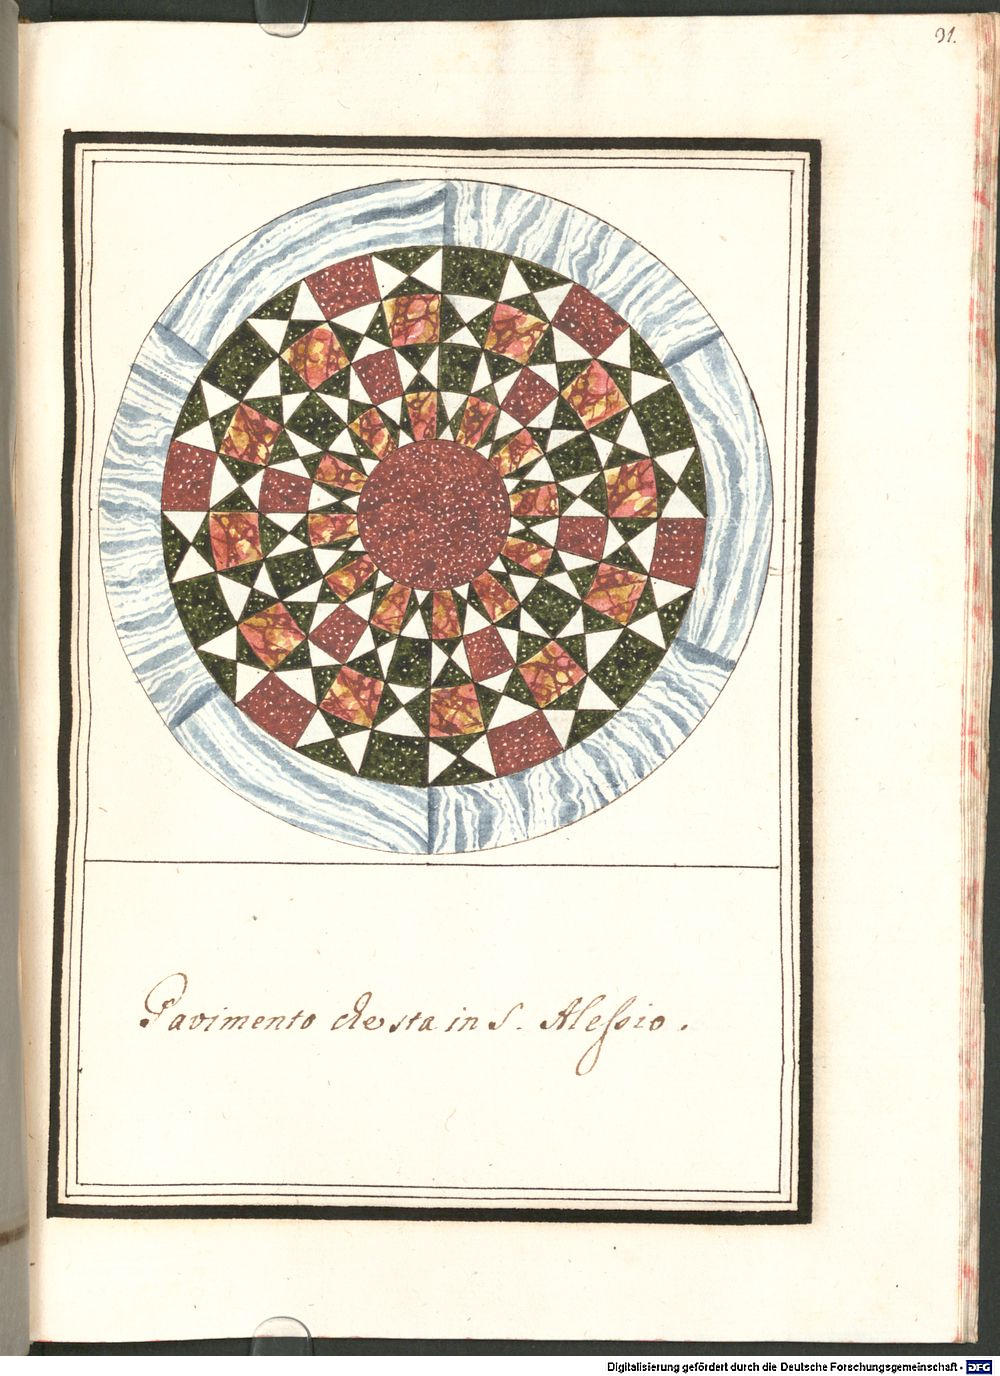 91.
Pavimento che sta in S. Aleſsio.
Digitalisierung gefördert durch die Deutsche Forschungsgemeinschaft - DFG